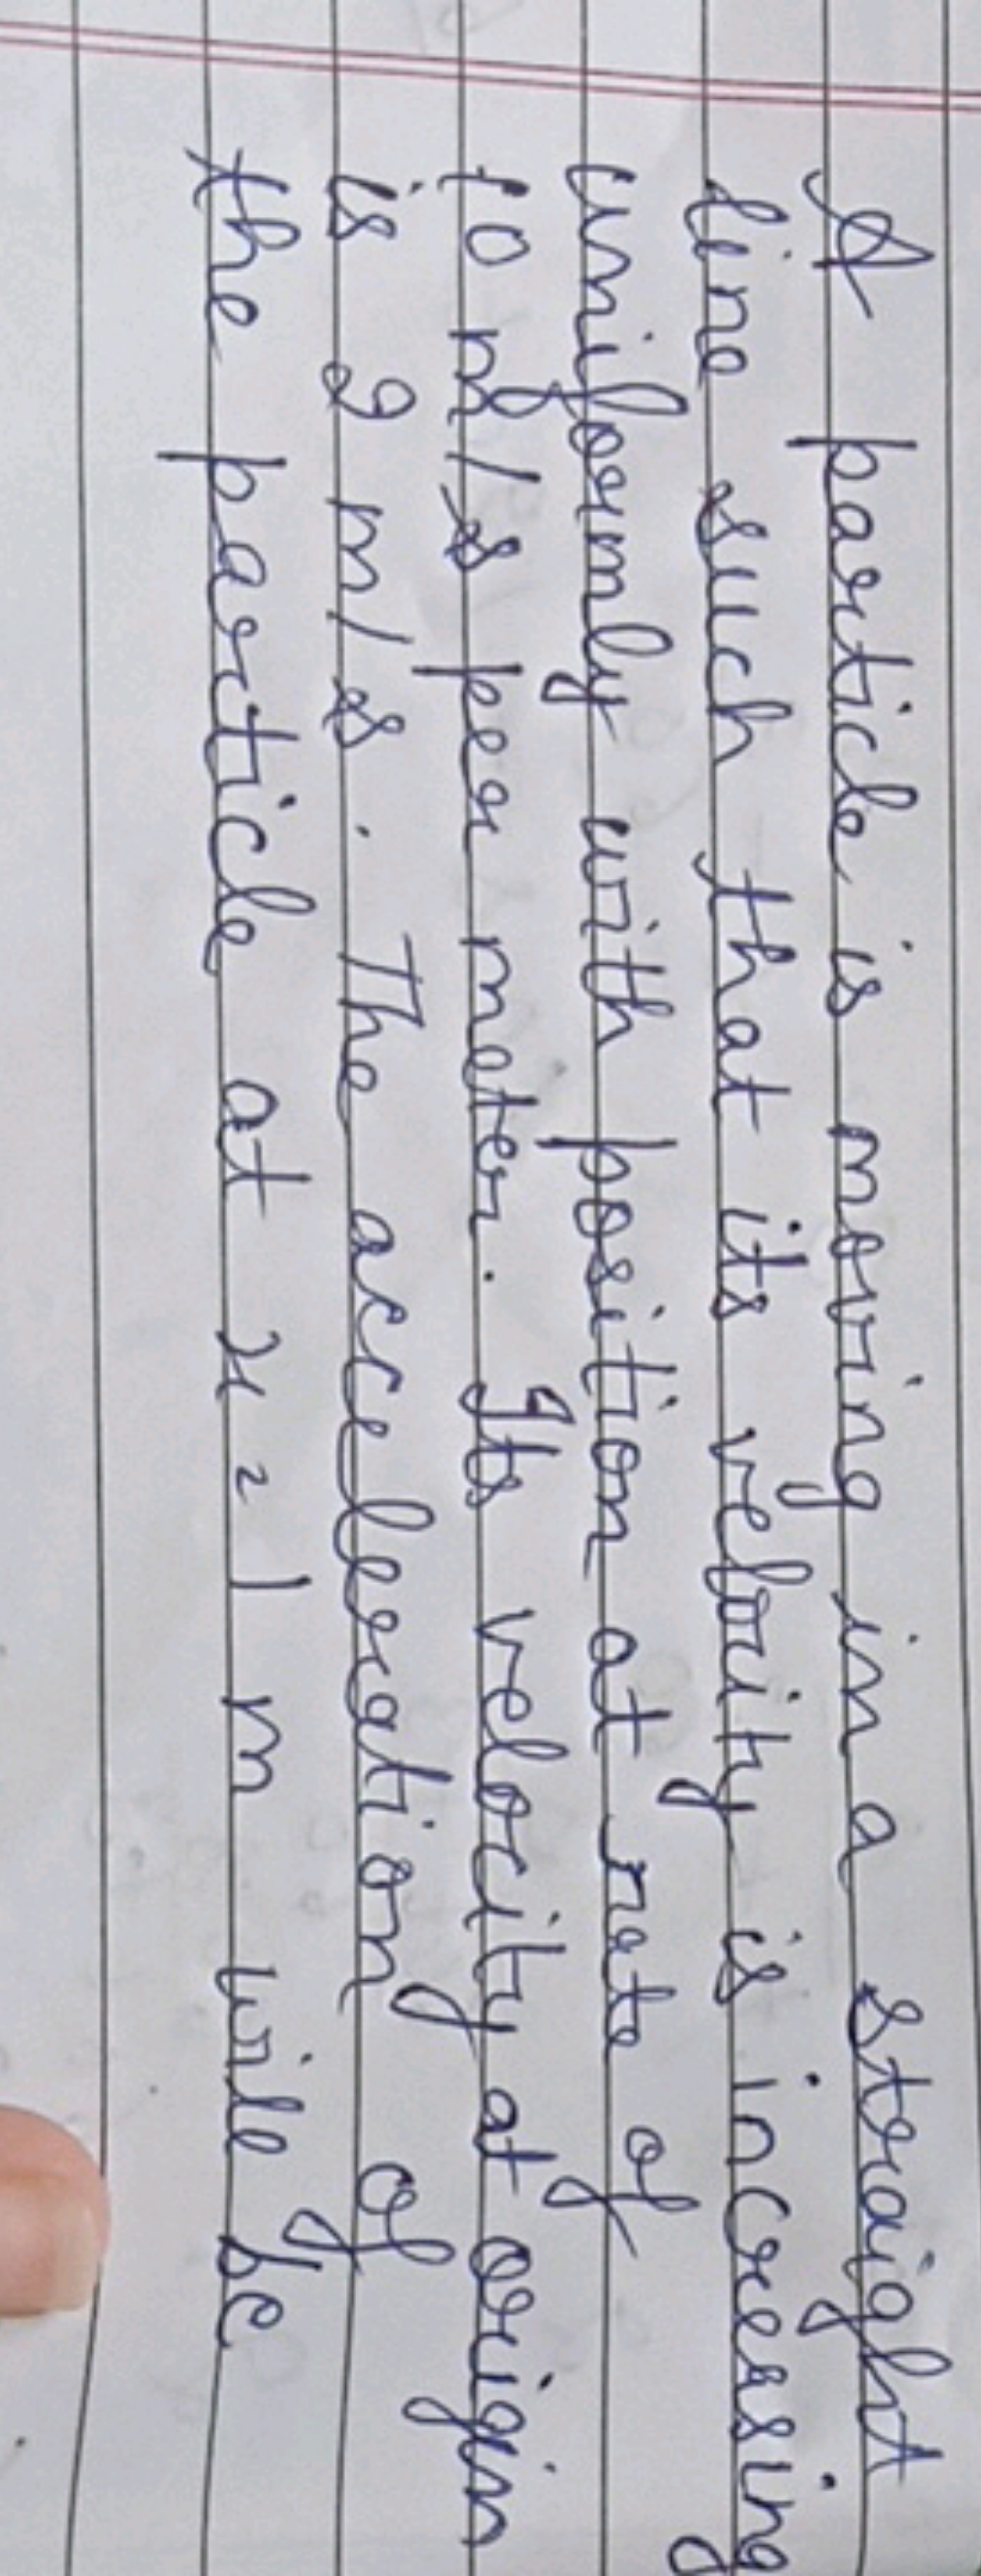 A particle is moving in a straight
line such that its velocity is incresing
uniformly with position at rate of
10 m/s per meter. Its velocity at origin
is 2 m/s. The acceleration of
the particle at x = 1 m will be